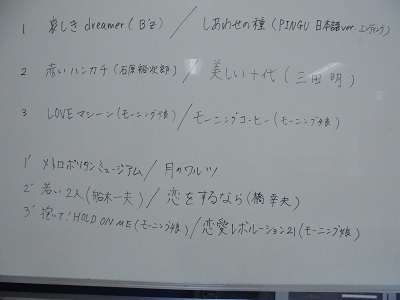 1 哀しき dreamer (B'z) / しあわせの種 (PINGU 日本語ver. エンディング)
2 赤いハンカチ (石原裕次郎) / 美しい十代 (三田 明)
3 LOVEマシーン (モーニング娘) / モーニングコーヒー (モーニング娘)
1' メトロポリタンミュージアム / 月のワルツ
2' 若い2人 (船木一夫) / 恋をするなら (橋 幸夫)
3' 抱いて!HOLD ON ME (モーニング娘) / 恋愛レボルーション21 (モーニング娘)